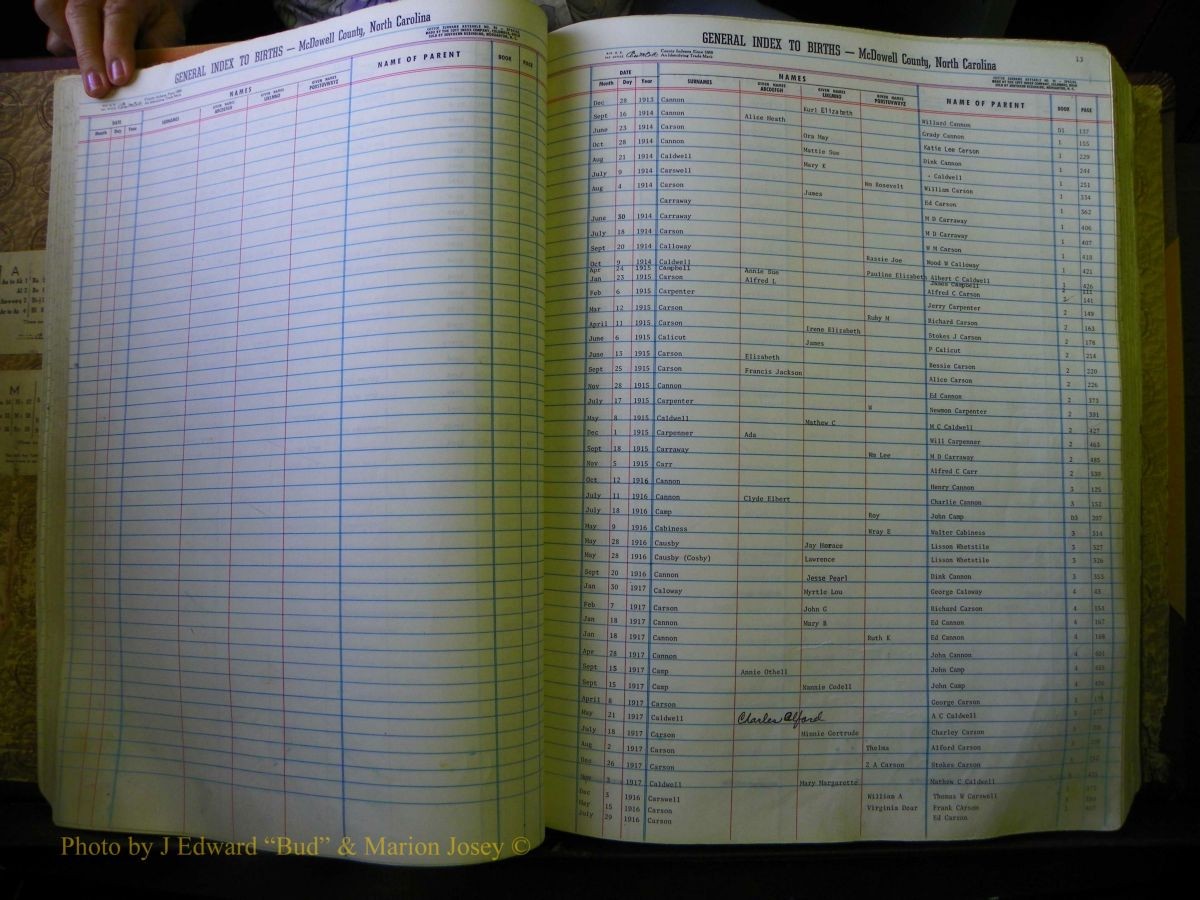 GENERAL INDEX TO BIRTHS — McDowell County, North Carolina
DATE NAMES NAME OF PARENT BOOK PAGE
Month Day Year SURNAMES GIVEN NAMES ABCDEFGH GIVEN NAMES IJKLMNO GIVEN NAMES PQRSTUVWXYZ
GENERAL INDEX TO BIRTHS — McDowell County, North Carolina 13
DATE NAMES NAME OF PARENT BOOK PAGE
Month Day Year SURNAMES GIVEN NAMES ABCDEFGH GIVEN NAMES IJKLMNO GIVEN NAMES PQRSTUVWXYZ
Dec 28 1913 Cannon Kurl Elizabeth Willard Cannon D1 137
Sept 16 1914 Cannon Alice Heath Grady Cannon 1 155
June 23 1914 Carson Ora May Katie Lee Carson 1 229
Oct 28 1914 Cannon Mattie Sue Dink Cannon 1 244
Aug 21 1914 Caldwell Mary E Caldwell 1 251
July 9 1914 Carswell Wm Rosevelt William Carson 1 334
Aug 4 1914 Carson James Ed Carson 1 362
Carraway M D Carraway 1 406
June 30 1914 Carraway M D Carraway 1 407
July 18 1914 Carson W M Carson 1 410
Sept 20 1914 Calloway Rassie Joe Wood W Calloway 1 421
Oct 9 1914 Caldwell Pauline Elizabeth Albert C Caldwell 1 426
Apr 24 1915 Campbell Annie Sue James Campbell 2
Jan 23 1915 Carson Alfred L Alfred C Carson 2 141
Feb 6 1915 Carpenter Jerry Carpenter 2 149
Mar 12 1915 Carson Ruby M Richard Carson 2 163
April 11 1915 Carson Irene Elizabeth Stokes J Carson 2 176
June 6 1915 Calicut James P Calicut 2 214
June 13 1915 Carson Elizabeth Bessie Carson 2 220
Sept 25 1915 Carson Francis Jackson Alice Carson 2 226
Nov 28 1915 Cannon Ed Cannon 2 373
July 17 1915 Carpenter W Newmon Carpenter 2 391
May 8 1915 Caldwell Mathew C M C Caldwell 2 427
Dec 1 1915 Carpenner Ada Will Carpenner 2 463
Sept 18 1915 Carraway Wm Lee M D Carraway 2 485
Nov 5 1915 Carr Alfred C Carr 2 530
Oct 12 1916 Cannon Henry Cannon 3 125
July 11 1916 Cannon Clyde Elbert Charlie Cannon 3 152
July 18 1916 Camp Roy John Camp D3 207
May 9 1916 Cabiness Wray E Walter Cabiness 3 314
May 28 1916 Causby Jay Horace Lisson Whetstile 3 327
May 28 1916 Causby (Cosby) Lawrence Lisson Whetstile 3 326
Sept 20 1916 Cannon Jesse Pearl Dink Cannon 3 353
Jan 30 1917 Caloway Myrtle Lou George Caloway 4 43
Feb 7 1917 Carson John G Richard Carson 4 154
Jan 18 1917 Cannon Mary B Ed Cannon 4 167
Jan 18 1917 Cannon Ruth K Ed Cannon 4 168
Apr 28 1917 Cannon John Cannon 4
Sept 15 1917 Camp Annie Othell John Camp 4
Sept 15 1917 Camp Nannie Codell John Camp 4
April 8 1917 Carson George Carson
May 21 1917 Caldwell Charles Alford A C Caldwell
July 18 1917 Carson Minnie Gertrude Charley Carson
Aug 2 1917 Carson Thelma Alford Carson
Dec 26 1917 Carson Z A Carson Stokes Carson
1917 Caldwell Mary Margarette Mathew C Caldwell
Dec 3 1916 Carswell William A Thomas W Carswell
May 15 1916 Carson Virginia Dear Frank Carson
July 29 1916 Carson Ed Carson
A
M
Photo by J Edward “Bud” & Marion Josey ©